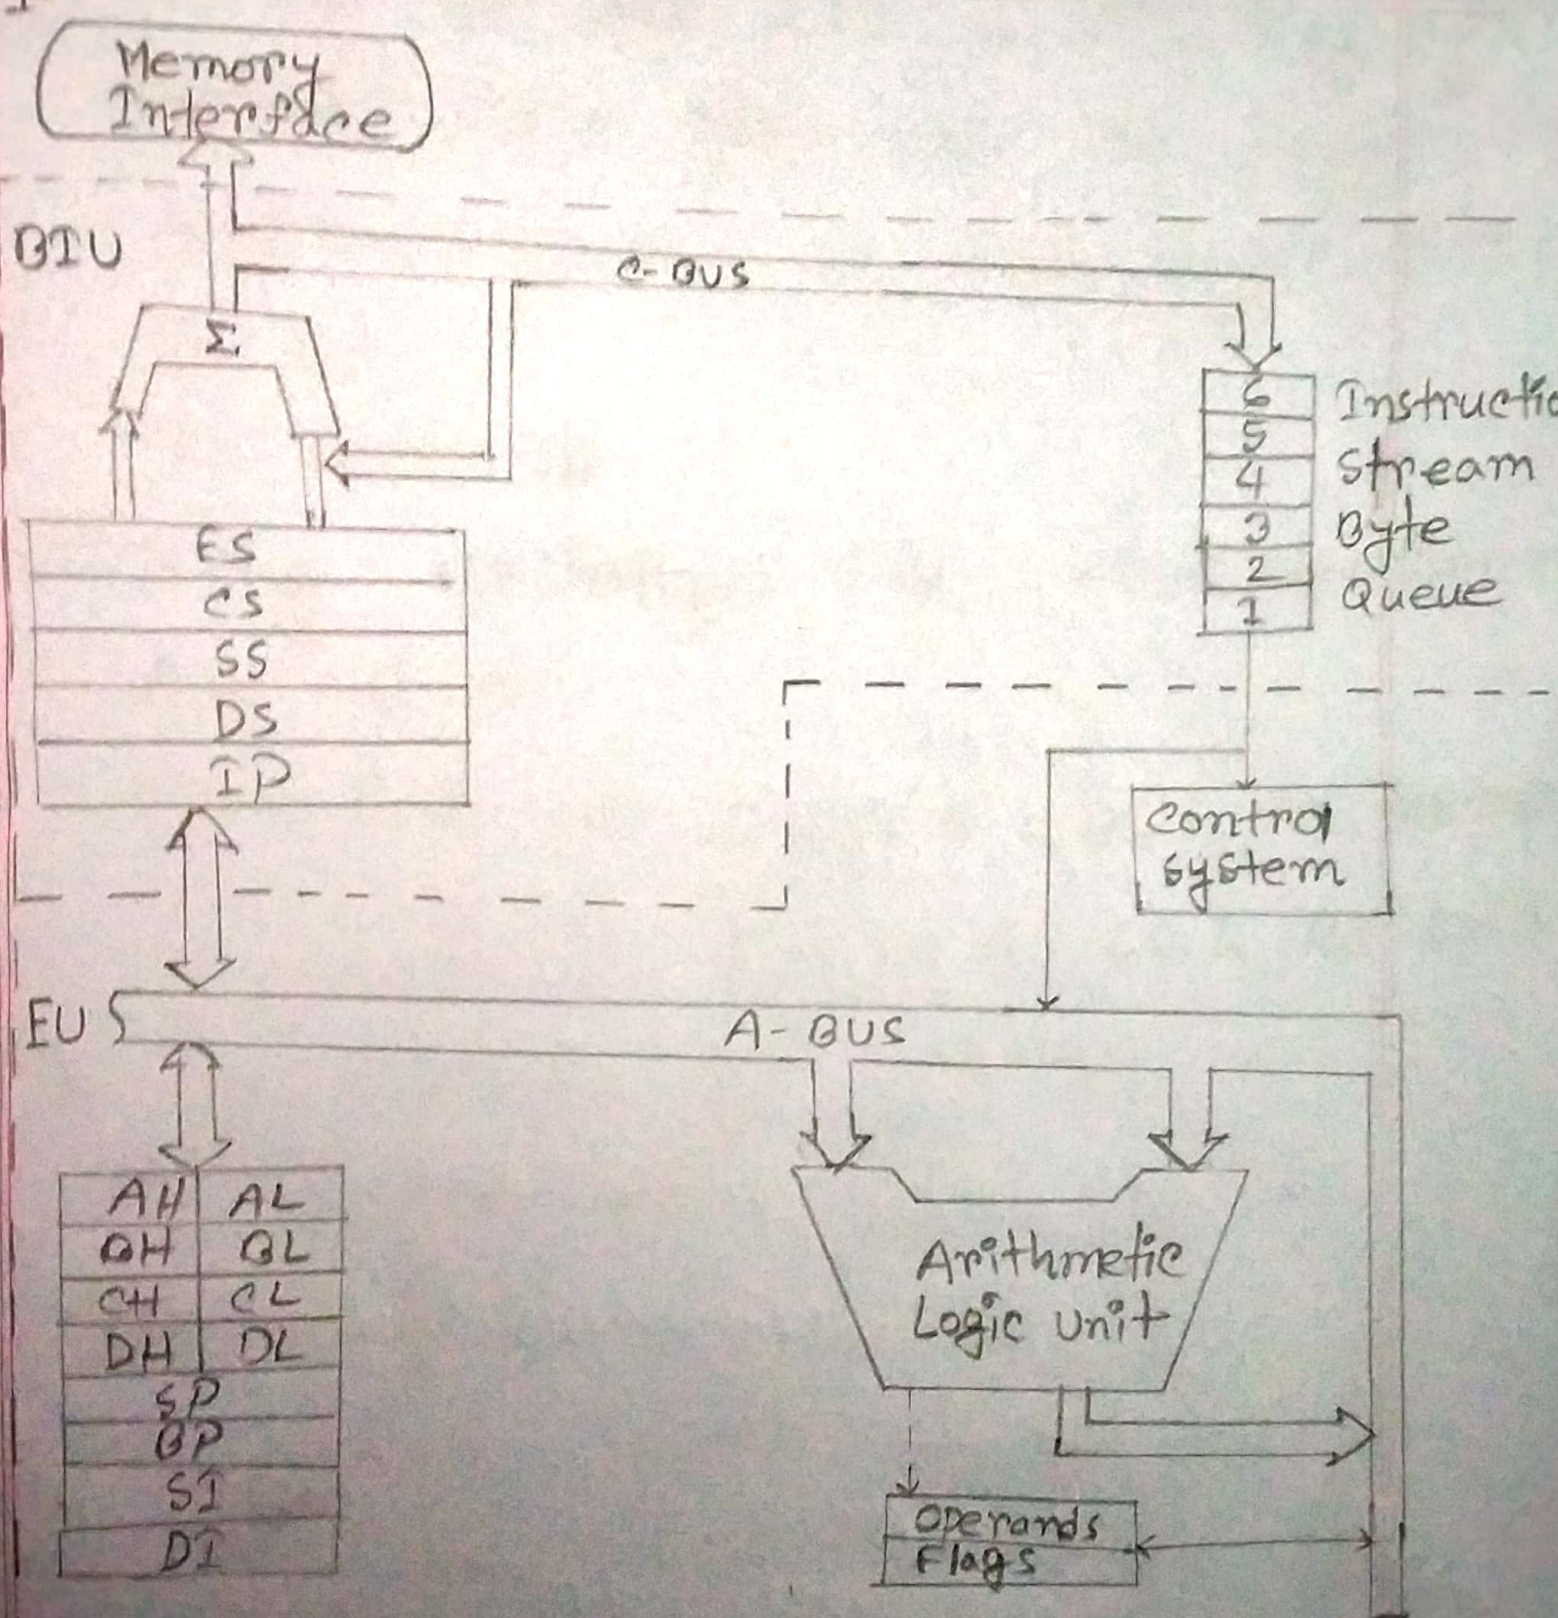 Memory
Interface
BIU
C-BUS
Σ
6
5
4
3
2
1
Instructio
Stream
Byte
Queue
ES
CS
SS
DS
IP
Control
system
EU
A-BUS
AH AL
BH BL
CH CL
DH DL
SP
BP
SI
DI
Arithmetic
Logic unit
Operands
Flags